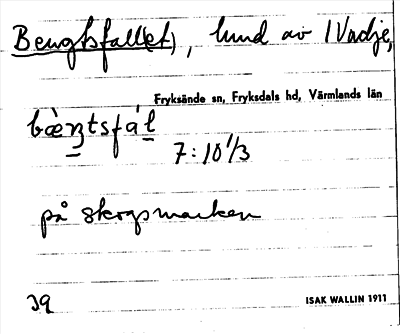 Bengtsfall(et), hmd av 1 Vadje,
Fryksände sn, Fryksdals hd, Värmlands län
bæ̀ŋtsfál
7:10 1/3
på skogsmarken
39
ISAK WALLIN 1911